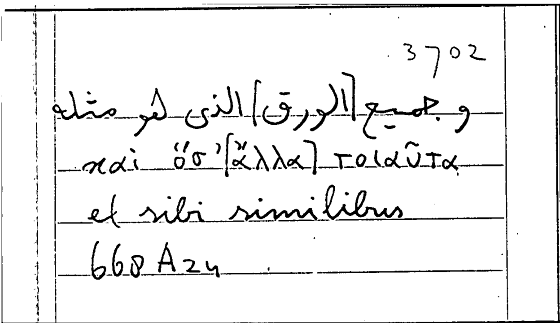 3702
وجميع [الورق] الذى هو مثله
καὶ ὅσ' [ἄλλα] τοιαῦτα
et sibi similibus
668 A 24